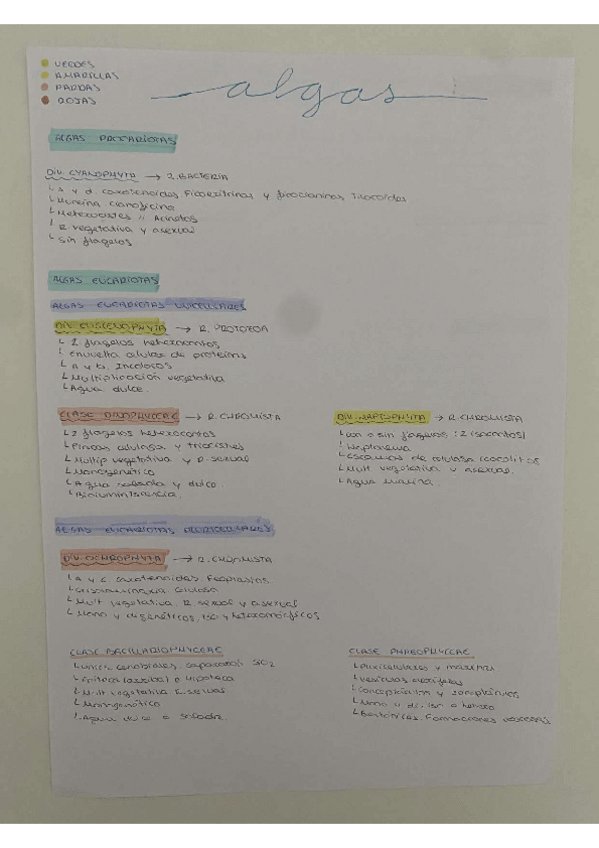 VERDES
AMARILLAS
PARDAS
ROJAS
algas
ALGAS PROCARIOTAS
DIV. CYANOPHYTA → R. BACTERIA
A y d. carotenoides, ficoeritrinas y ficocianinas. Tilacoides
Mureína, cianoficina
Heterocistes // Acinetos
R. vegetativa y asexual
Sin flagelos
ALGAS EUCARIOTAS
ALGAS EUCARIOTAS UNICELULARES
DIV. EUGLENOPHYTA → R. PROTOZOA
2 flagelos heterocontos
Envuelta celular de proteínas
A y b. Incoloros
Multiplicación vegetativa
Agua dulce.
CLASE DINOPHYCEAE → R. CHROMISTA
2 flagelos heterocontos
celulosa y
Multip vegetativa y R. sexual
Monogenético
Agua salada y dulce.
Bioluminiscencia.
DIV. HAPTOPHYTA → R. CHROMISTA
con o sin flagelos: 2 (isocontos)
Haptonema
Escamas de celulosa (cocolitos)
Mult vegetativa y asexual.
Agua marina.
ALGAS EUCARIOTAS PLURICELULARES
DIV. OCHROPHYTA → R. CHROMISTA
A y c. carotenoides. Feoplastos
Crisolaminarina. Celulosa
Mult vegetativa. R sexual y asexual
Mono y digenéticos, iso y heteromórficos
CLASE BACILLARIOPHYCEAE
SiO2
Epiteca e hipoteca
Mult vegetativa
Monogenético
Agua dulce o salada.
CLASE PHAEOPHYCEAE
Pluricelulares y marinas
Vesículas aeríferas
Conceptáculos y
Mono y di. iso o hetero
Bentónicas. Formaciones